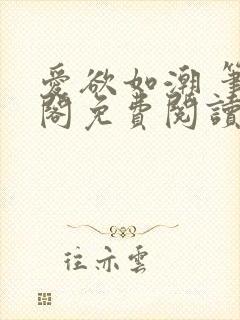 愛欲如潮 筆
閣免費閱讀
往亦雲